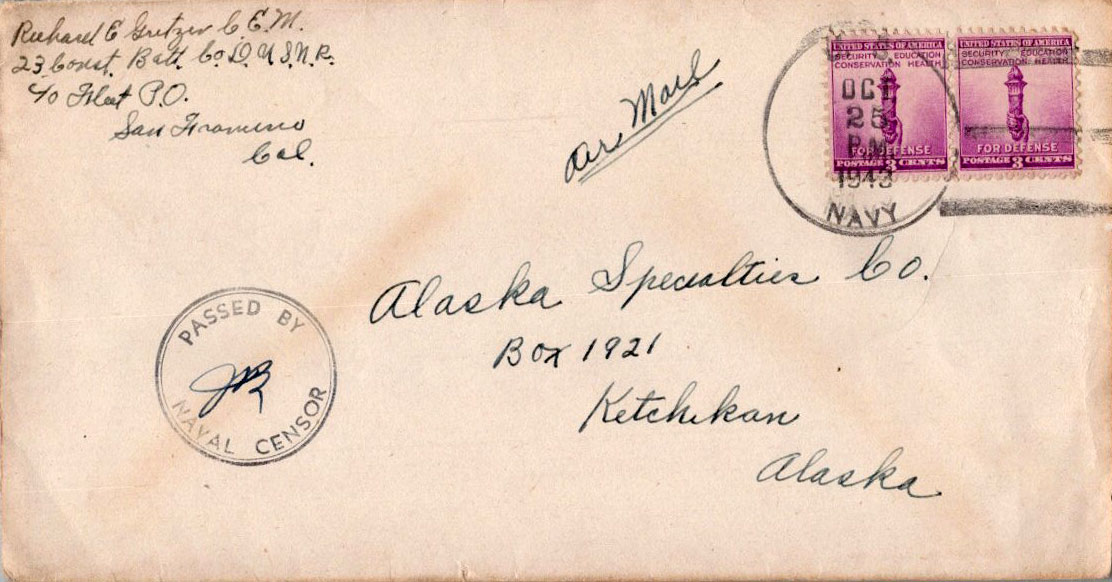 Richard E Gritzer C.E.M.
23 Const. Batt. Co D. U.S.N.R.
c/o Fleet P.O.
San Francisco
Cal.
Air Mail
UNITED STATES OF AMERICA
SECURITY EDUCATION
CONSERVATION HEALTH
FOR DEFENSE
POSTAGE 3 CENTS
UNITED STATES OF AMERICA
SECURITY EDUCATION
CONSERVATION HEALTH
FOR DEFENSE
POSTAGE 3 CENTS
OCT
25
P.M.
1943
NAVY
Alaska Specialties Co.
Box 1921
Ketchikan
Alaska
PASSED BY
NAVAL CENSOR